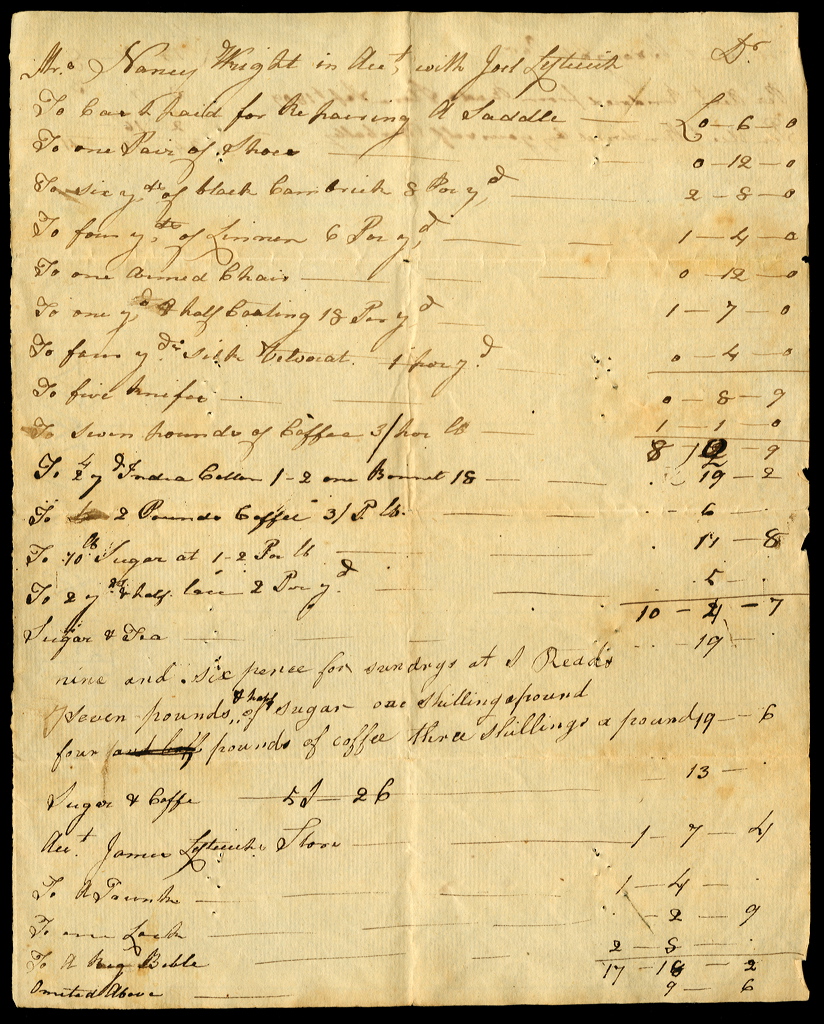 Mrs Nancy Wright in Acct with Joel Leftwich Dr
To Cash paid for Repairing A Saddle £0-6-0
To one Pair of Shoes 0-12-0
To six yds of black Cambrick 8 Per yd 2-8-0
To four yds of Linnen 6 Per yd 1-4-0
To one Armed Chair 0-12-0
To one yd & half Coating 18 Per yd 1-7-0
To four yds silk Velvoat 1 per yd 0-4-0
To five knifes 0-8-9
To seven pounds of Coffee 3/ per lb 1-1-0
8 12 9
To 4 yd India Cotton 1-2 one Bonnet 18 19-2
To 2 Pounds Coffee 3/ P. lb. 6
To 10 lb Sugar at 1-2 Per lb 11-8
To 2 yds & half lace 2 Per yd 5
10-4-7
Sugar & Tea 19
nine and six pence for sundrys at J Reads
seven pounds & half of sugar one shilling a pound
four and half pounds of coffee three shillings a pound 19-6
Sugar & Coffe 5 S-26 13
Acct James Leftwich Store 1-7-4
To A Trunke 1-4
To one Lock 2-9
To A Bible 2-8
17-18-2
Omited Above 9-6